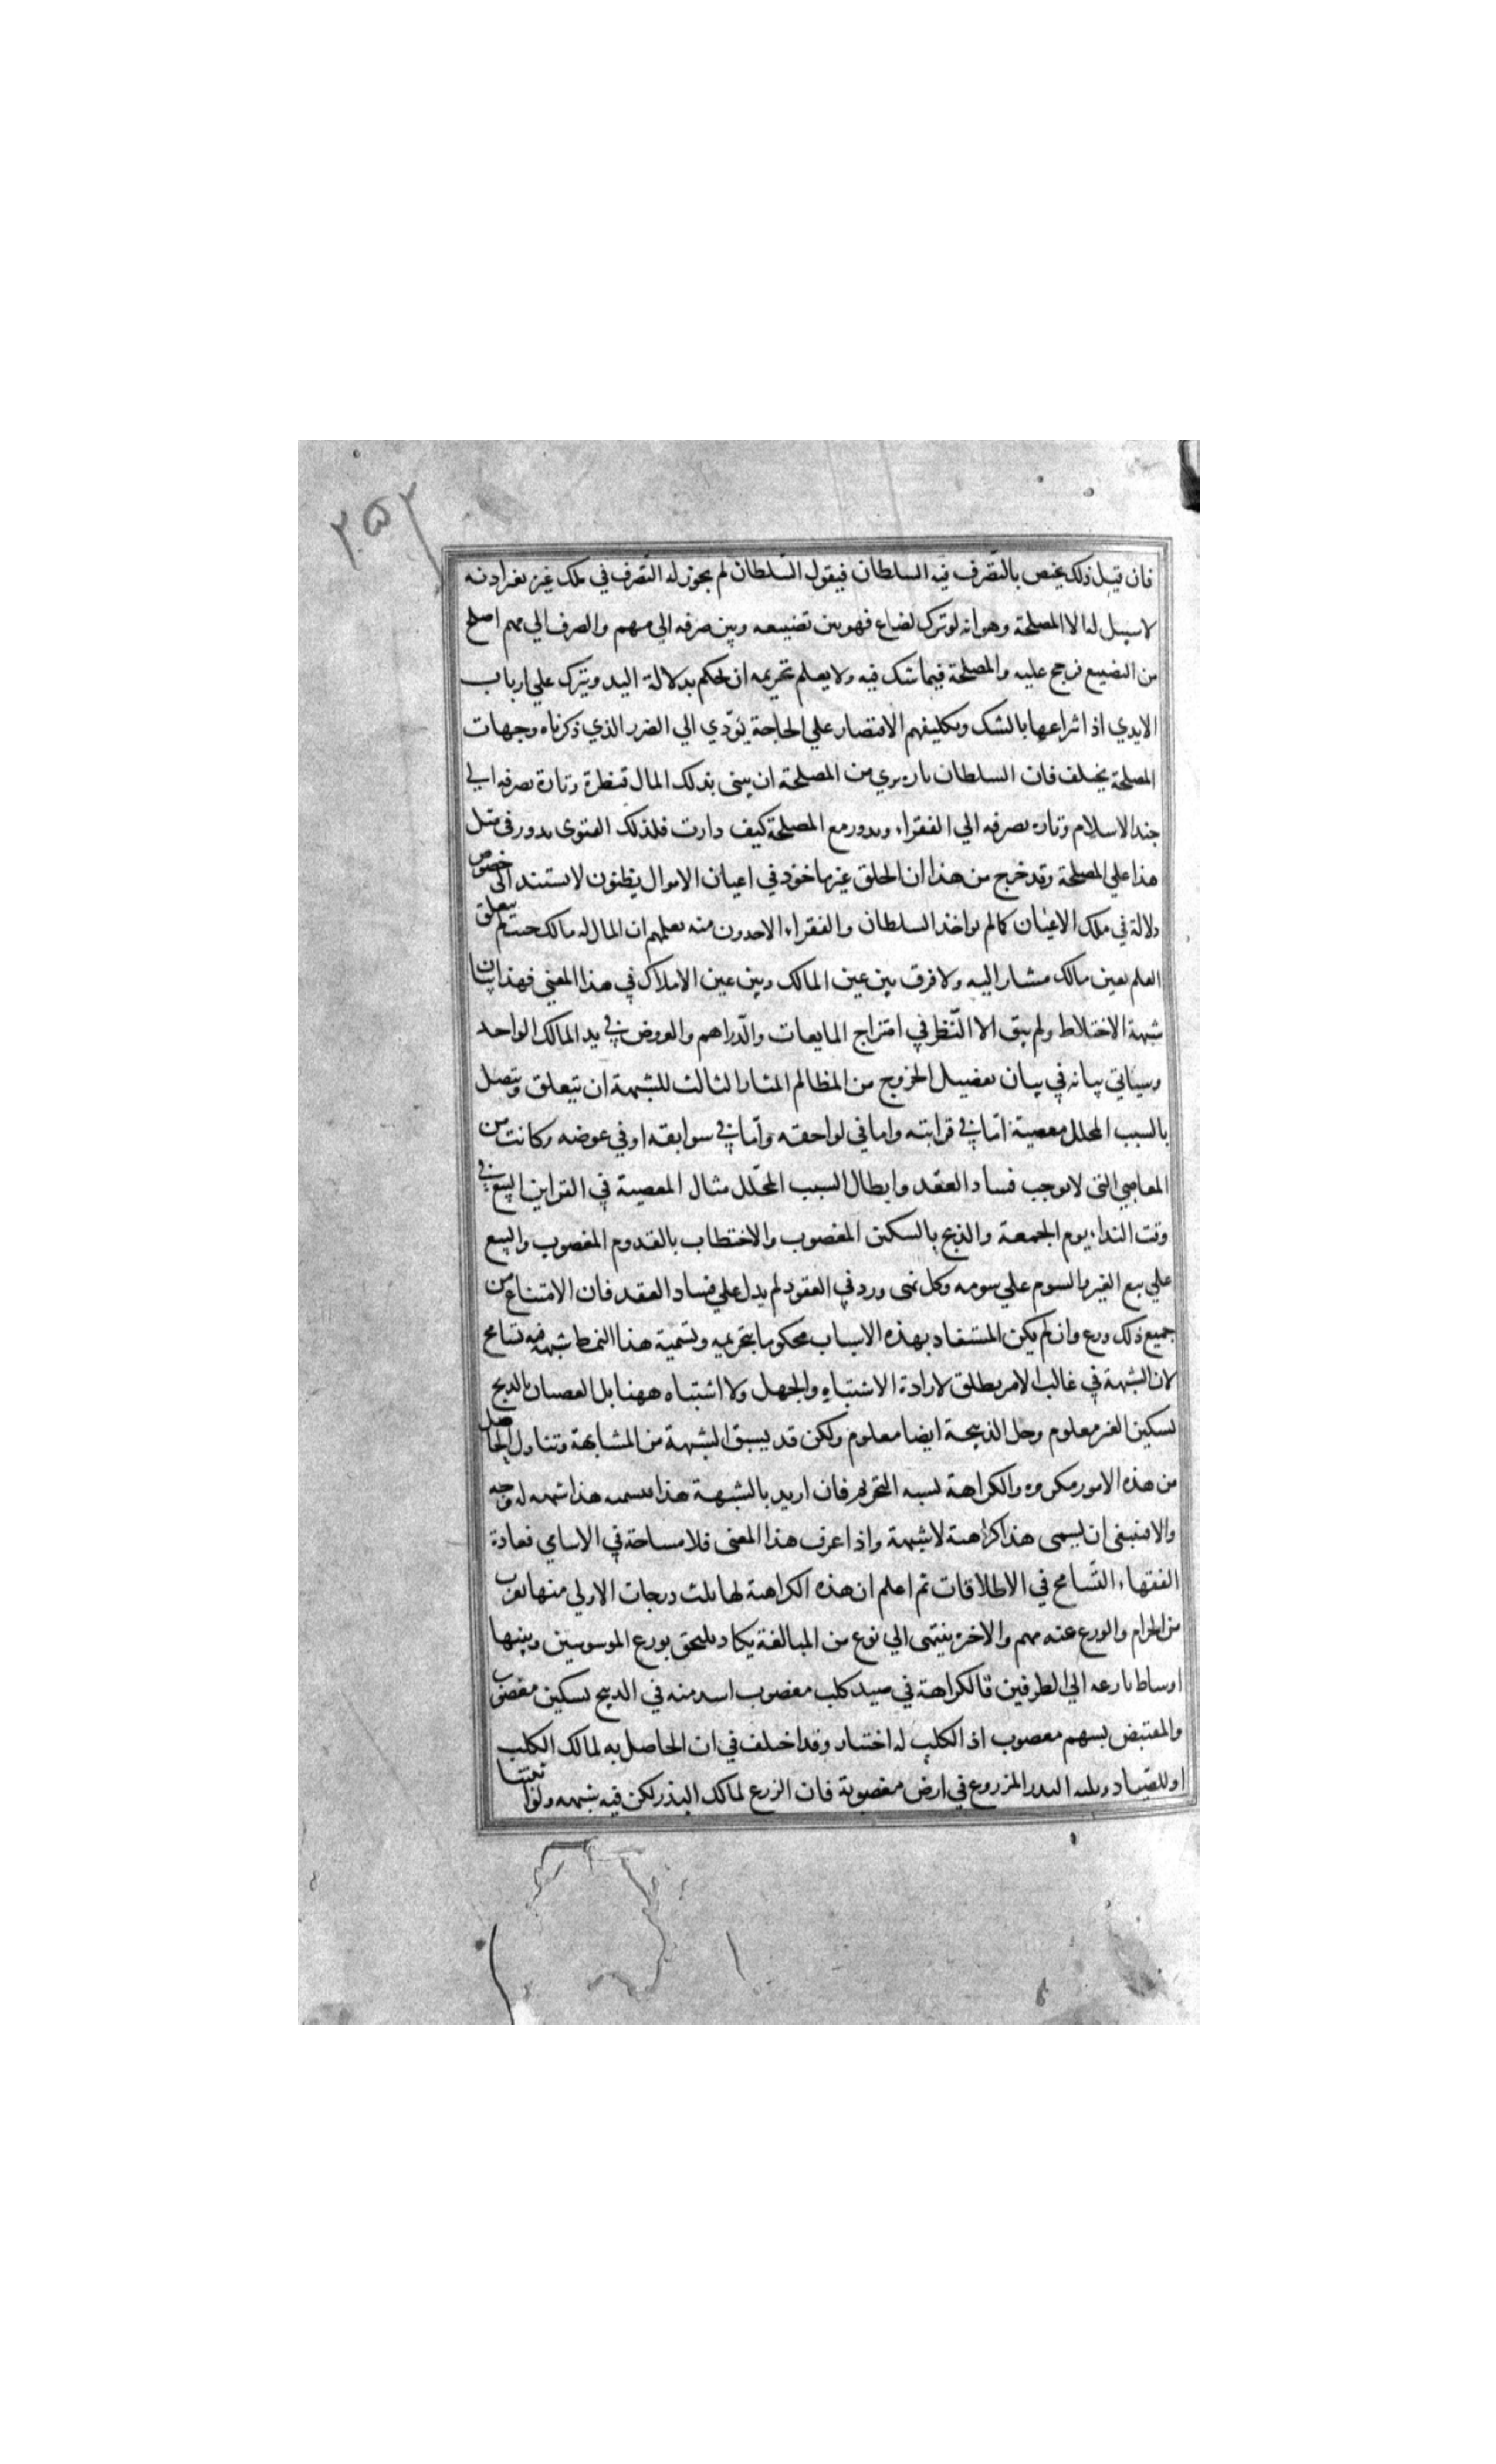 ٢٥٢
فان قيل ذلك يختص بالتصرف فيه السلطان فيقول السلطان لم يجوز له التصرف في ملك غيره بغير اذنه
لا سبيل له الا المصلحة وهو انه لو ترك لضاع فهو بين تضييعه وبين صرفه الي مهم والصرف الي مهم اصلح
من التضييع فرجح عليه والمصلحة فيما شك فيه ولا يعلم تحريمه ان يحكم بدلالة اليد ويترك علي ارباب
الايدي اذ انتزاعها بالشك وتكليفهم الاقتصار علي الحاجة يؤدي الي الضرر الذي ذكرناه وجهات
المصلحة يختلف فان السلطان تارة يري من المصلحة ان يبني بذلك المال قنطرة وتارة يصرفه الي
جند الاسلام وتارة يصرفه الي الفقراء ويدور مع المصلحة كيف دارت فلذلك الفتوى يدور في مثل
هذا علي المصلحة وقد خرج من هذا ان الخلق غير ماخوذ في اعيان الاموال بظنون لا يستند الى خصوص
دلالة في ملك الاعيان كما لم يواخذ السلطان والفقراء الاخذون منه بعلمهم ان المال له مالك حيث لم يتعلق
العلم بعين مالك مشار اليه ولا فرق بين عين المالك وبين عين الاملاك في هذا المعني فهذا بيان
شبهة الاختلاط ولم يبق الا النظر في امتزاج المايعات والدراهم والعروض في يد المالك الواحد
وسياتي بيانه في بيان تفصيل الخروج من المظالم المثار الثالث للشبهة ان يتعلق ويتصل
بالسبب المحلل معصية اما في قرابته واما في لواحقه واما في سوابقه او في عوضه وكانت من
المعاصي التي لا يوجب فساد العقد وابطال السبب المحلل مثال المعصية في القراين البيع في
وقت النداء يوم الجمعة والذبح بالسكين المغصوب والاختطاب بالقدوم المغصوب والبيع
علي بيع الغير والسوم علي سومه وكل نهى ورد في العقود لم يدل علي فساد العقد فان الامتناع من
جميع ذلك ورع وان لم يكن المستفاد بهذه الاسباب محكوما بتحريمه وتسمية هذا النمط شبهة فيه تسامح
لان الشبهة في غالب الامر يطلق لارادة الاشتباه والجهل ولا اشتباه ههنا بل العصيان بالذبح
بسكين الغير معلوم وحل الذبيحة ايضا معلوم ولكن قد يسبق الشبهة من المشابهة وتناول الحاصل
من هذه الامور مكروه والكراهة يشبه التحريم فان اريد بالشبهة هذا فتسمية هذا شبهة له وجه
والا فينبغي ان يسمى هذا كراهية لا شبهة واذا عرف هذا المعنى فلا مساحة في الاسامي فعادة
الفقهاء التسامح في الاطلاقات ثم اعلم ان هذه الكراهية لها ثلث درجات الاولي منها يقرب
من الحرام والورع عنه مهم والاخرة ينتهى الي نوع من المبالغة يكاد يلتحق بورع الموسوسين وبينها
اوساط نازعة الي الطرفين فالكراهة في صيد كلب مغصوب اشد منه في الذبح بسكين مغصوب
والمقتبض بسهم مغصوب اذ الكلب له اختيار وقد اختلف في ان الحاصل به لمالك الكلب
او للصياد ويليه البذر المزروع في ارض مغصوبة فان الزرع لمالك البذر لكن فيه شبهة ولو اثبتنا